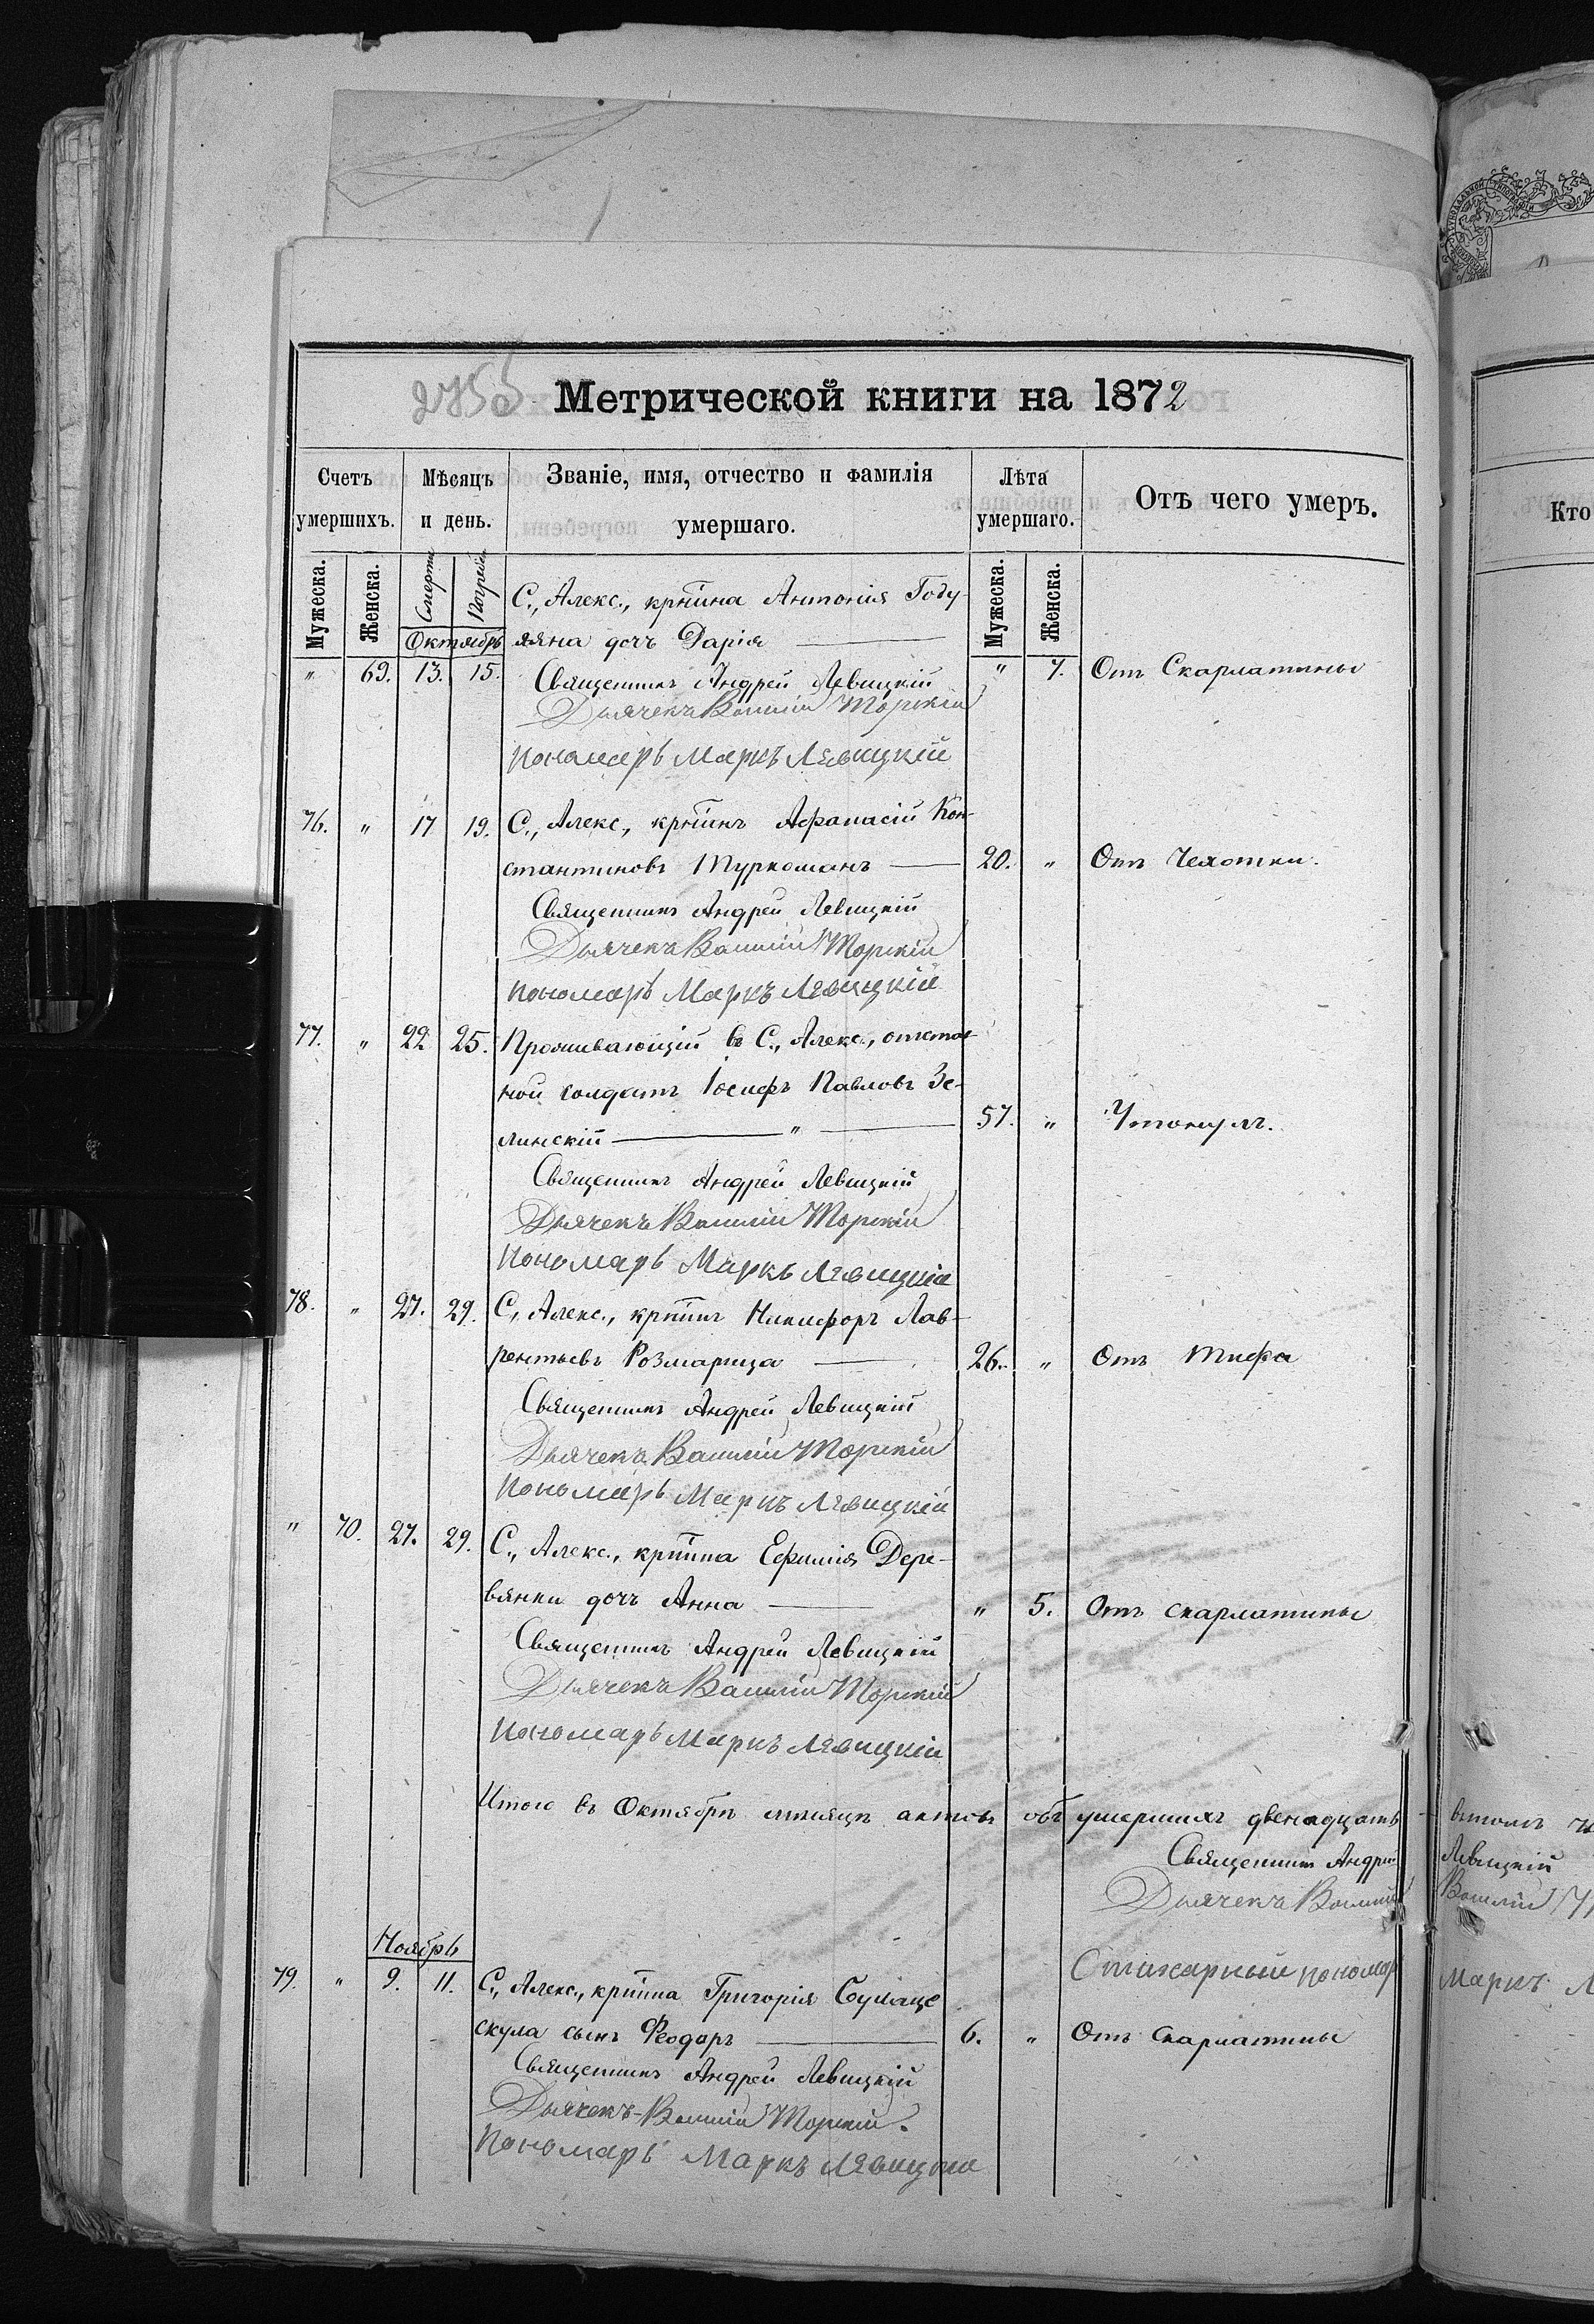 2755 Метрической книги на 1872
Счетъ умершихъ. Мѣсяцъ и день. Званіе, имя, отчество и фамилія умершаго. Лѣта умершаго. Отъ чего умеръ.
Мужеска. Женска. Смерти Погреб. Мужеска. Женска.
Октябрь
С., Алекс., крѣтина Антонія Году-
ляна дочь Дарія
" 69. 13. 15. " 7. Отъ Скарлатины
Священникъ Андрей Левицкій
Дьячекъ Василій Торскій
Пономарь Маркъ Левицкій
76. " 17 19. С., Алекс., крѣтинъ Афанасій Кон-
стантиновъ Туркоманъ 20. " Отъ Чехотки.
Священникъ Андрей Левицкій
Дьячекъ Василій Торскій
Пономарь Маркъ Левицкій
77. " 22 25. Проживающій въ С., Алекс., отстав-
ной солдатъ Іосифъ Павловъ Зе-
линскій " 57. " Утонулъ.
Священникъ Андрей Левицкій
Дьячекъ Василій Торскій
Пономарь Маркъ Левицкій
78. " 27. 29. С., Алекс., крѣтинъ Никифоръ Лав-
рентьевъ Розмарица 26. " Отъ Тифа
Священникъ Андрей Левицкій
Дьячекъ Василій Торскій
Пономарь Маркъ Левицкій
" 70. 27. 29. С., Алекс., крѣтина Ефимія Дере-
вянки дочь Анна " 5. Отъ скарлатины
Священникъ Андрей Левицкій
Дьячекъ Василій Торскій
Пономарь Маркъ Левицкій
Итого въ Октябрѣ мѣсяцѣ актовъ объ умершихъ двенадцать
Священникъ Андрей
Дьячекъ Василій
Стихарный пономар
Ноябрь
79. " 9. 11. С., Алекс., крѣтина Григорія
скула сынъ Феодоръ 6. " Отъ Скарлатины
Священникъ Андрей Левицкій
Дьячекъ Василій Торскій.
Пономарь Маркъ Левицкій
Кто
Левицкій
Василій
Маркъ